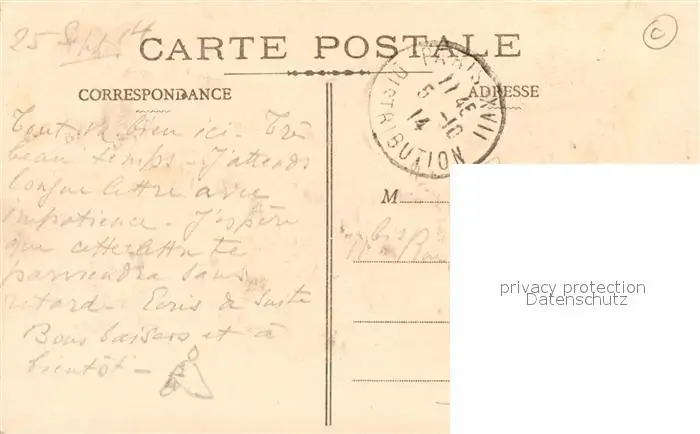 25 Sept 14
CARTE POSTALE
CORRESPONDANCE
ADRESSE
PARIS XVIII
11 45
5 -10
14
DISTRIBUTION
Tout va bien ici - Très
beau temps - J'attends
longue lettre avec
impatience - J'espère
que cette lettre te
parviendra sans
retard - Ecris de suite
Bons baisers et à
bientôt -
M
bis
privacy protection
Datenschutz
C